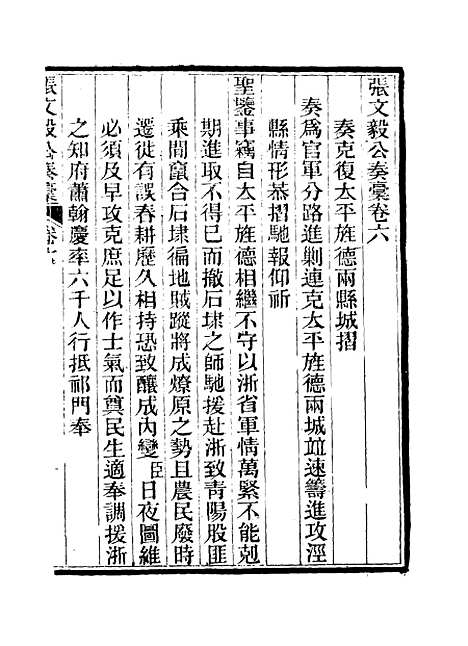 張文毅公奏稾卷六
奏克復太平旌德兩縣城摺
奏爲官軍分路進剿連克太平旌德兩城並速籌進攻涇
縣情形恭摺馳報仰祈
聖鑒事竊自太平旌德相繼不守以浙省軍情萬緊不能剋
期進取不得已而撤石埭之師馳援赴浙致青陽股匪
乘間竄合石埭徧地賊蹤將成燎原之勢且農民廢時
遷徙有誤春耕歷久相持恐致釀成內變臣日夜圖維
必須及早攻克庶足以作士氣而奠民生適奉調援浙
之知府蕭翰慶率六千人行抵祁門奉
張文毅公奏稾 卷六